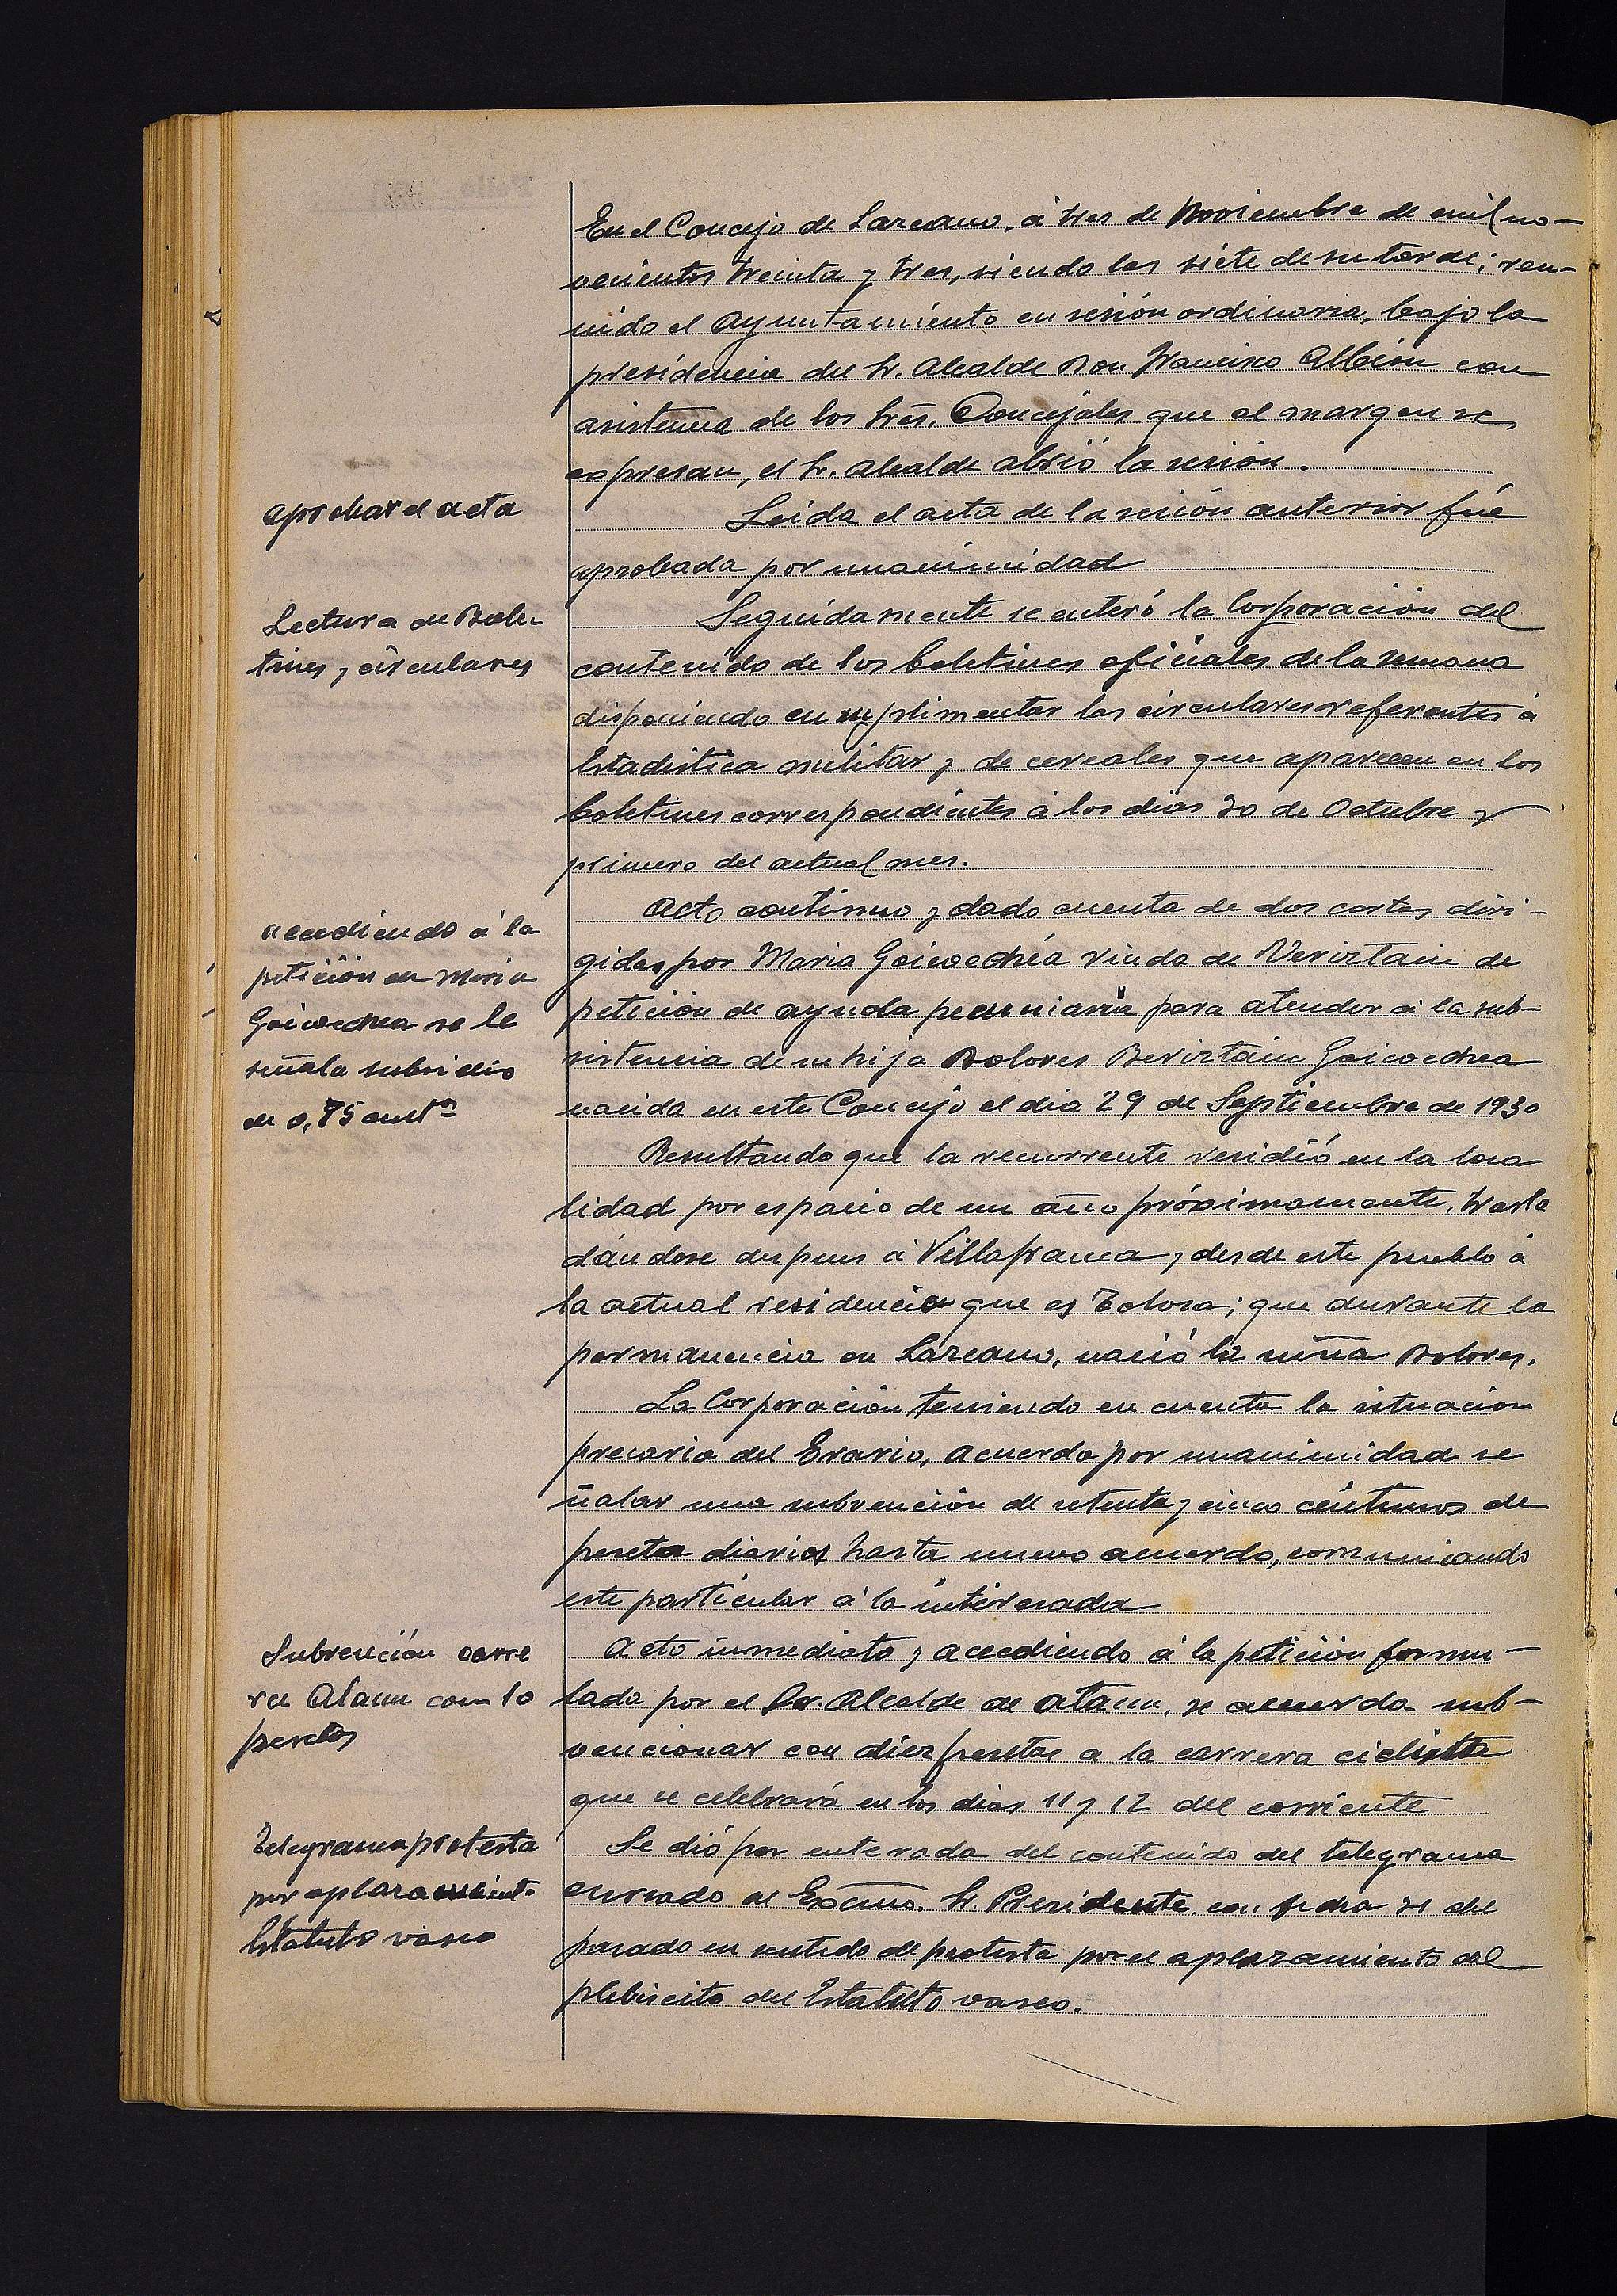 En el Concejo de Lazcano, á tres de Noviembre de mil no-
vecientos treinta y tres, siendo las siete de su tarde; reu-
nido el Ayuntamiento en sesión ordinaria, bajo la
presidencia del Sr. Alcalde Don Francisco Albisu con
asistencia de los Sres. Concejales que al margen se
expresan, el Sr. Alcalde abrió la sesión.
aprobar el acta
Leida el acta de la sesión anterior fué
aprobada por unanimidad
Lectura de Bole-
tines y circulares
Seguidamente se enteró la Corporación del
contenido de los boletines oficiales de la semana
disponiendo cumplimentar las circulares referentes á
Estadistica militar y de cereales que aparecen en los
boletines correspondientes á los dias 30 de Octubre y
primero del actual mes.
accediendo á la
petición de Maria
Goicoechea se le
señala subsidio
de 0,75 cent.s
Acto continuo y dado cuenta de dos cartas diri-
gidas por Maria Goicoechéa viuda de Berirtain de
petición de ayuda pecuniaria para atender á la sub-
sistencia de su hija Dolores Berirtain Goicoechea
nacida en este Concejo el dia 29 de Septiembre de 1930
Resultando que la recurrente residió en la loca
lidad por espacio de un año próximamente, trasla
dándose despues á Villafranca y desde este pueblo á
la actual residencia que es Tolosa; que durante la
permanencia en Lazcano, nació la niña Dolores.
La Corporación teniendo en cuenta la situacion
precaria del Erario, acuerda por unanimidad se
ñalar una subvención de setenta y cinco céntimos de
peseta diarios hasta nuevo acuerdo, comunicando
este particular á la interesada
Subvención carre
ra Ataun con 10
pesetas
Acto inmediato y accediendo á la petición formu-
lada por el Sr. Alcalde de Ataun, se acuerda sub-
vencionar con diez pesetas a la carrera ciclista
que se celebrará en los dias 11 y 12 del corriente
Telegrama protesta
por aplazamiento
Estatuto vasco
Se dió por enterada del contenido del telegrama
cursado al Excmo. Sr. Presidente con fecha 31 del
pasado en sentido de protesta por el aplazamiento del
plebiscito del Estatuto vasco.